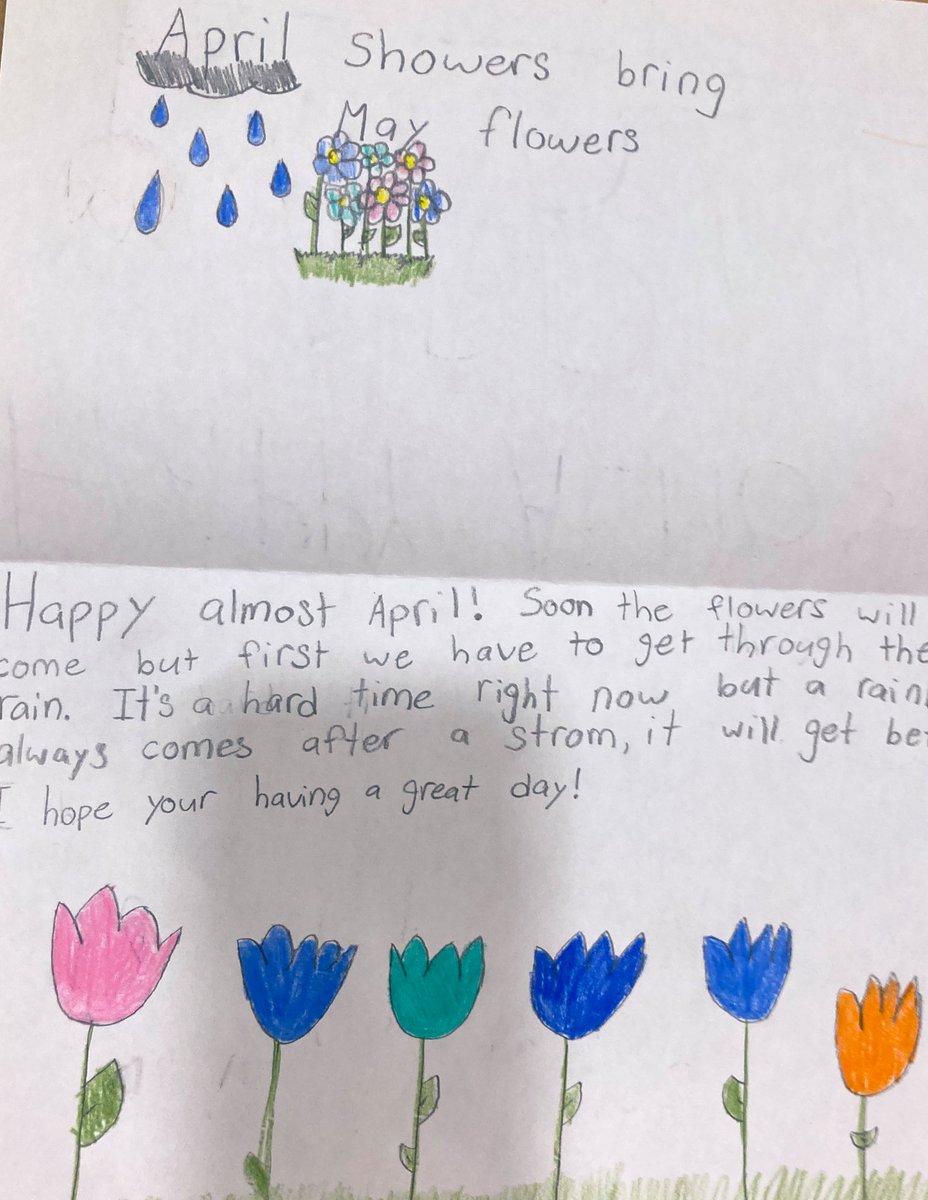 April Showers bring
May flowers
Happy almost April! Soon the flowers will
come but first we have to get through the
rain. It's a hard time right now but a
always comes after a strom, it will get
I hope your having a great day!